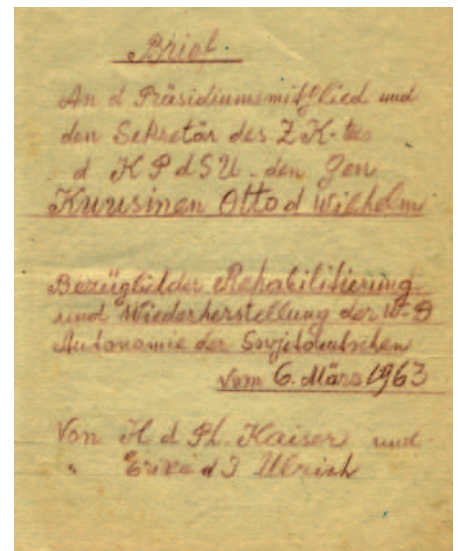 Brief.
An d Präsidiumsmitglied und
den Sekretär des ZK-tees
d KPdSU - den Gen
Kuusinen Otto d Wilhelm
Bezüglich der Rehabilitierung
und Wiederherstellung der W-D
Autonomie der Sowjetdeutschen
vom 6. März 1963
Von H d Ph. Kaiser und
" Erika d J Ulrich